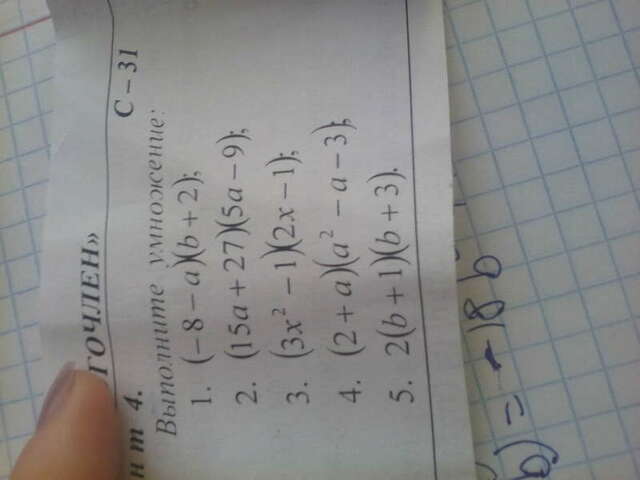 ГОЧЛЕН»
нт 4. С – 31
Выполните умножение:
1. (–8 – a)(b + 2);
2. (15a + 27)(5a – 9);
3. (3x² – 1)(2x – 1);
4. (2 + a)(a² – a – 3);
5. 2(b + 1)(b + 3).
b) = – 18 b